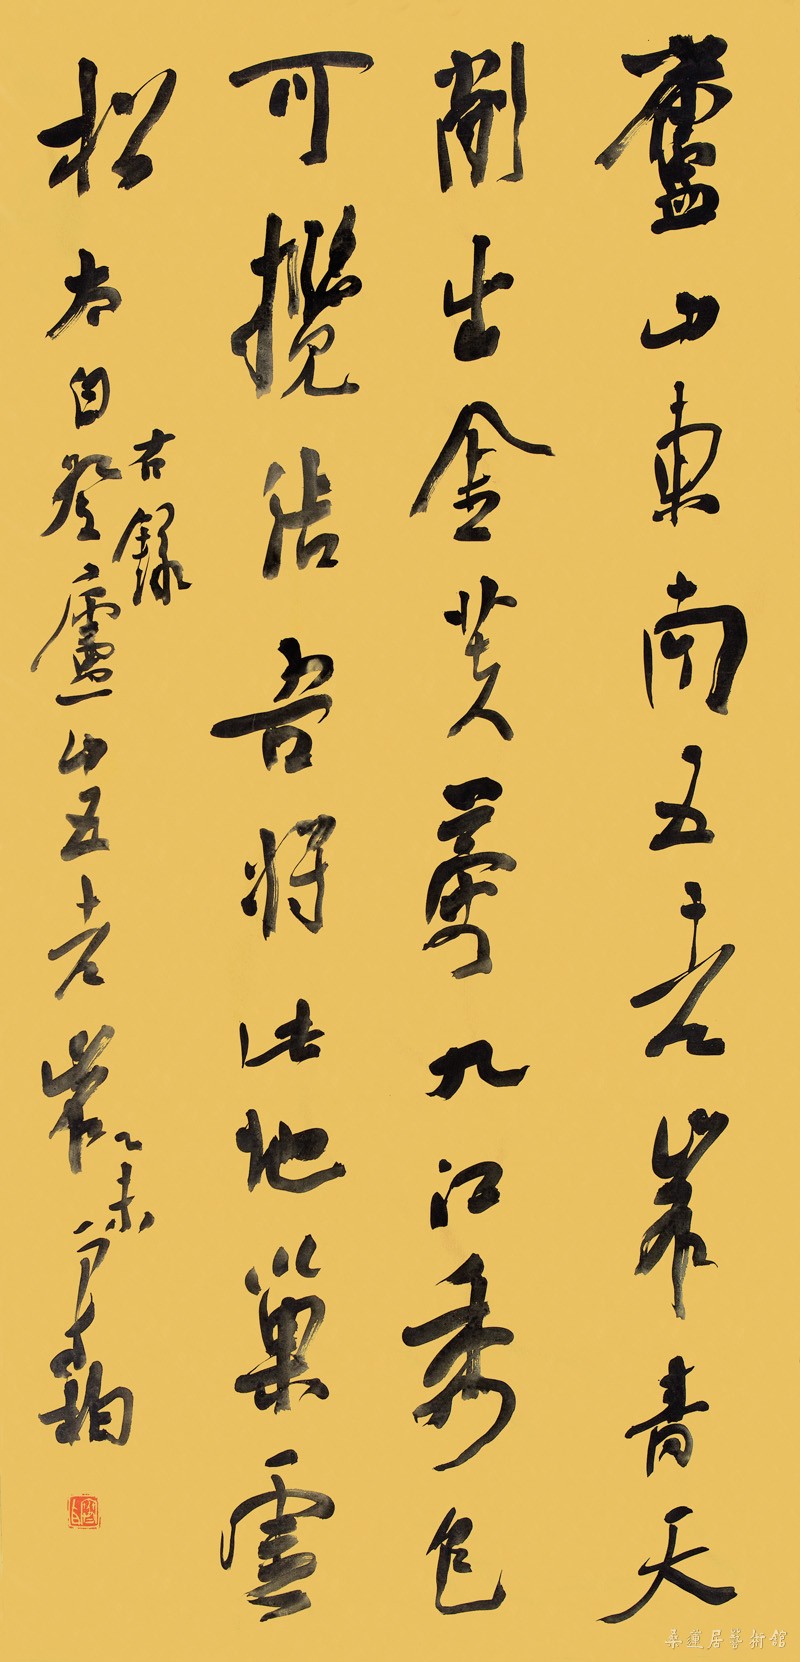 廬山東南五老峯青天
削出金芙蓉九江秀色
可攬結吾將此地巢雲
松
右錄
太白登廬山五老峯
乙未
桑蓮居藝術館